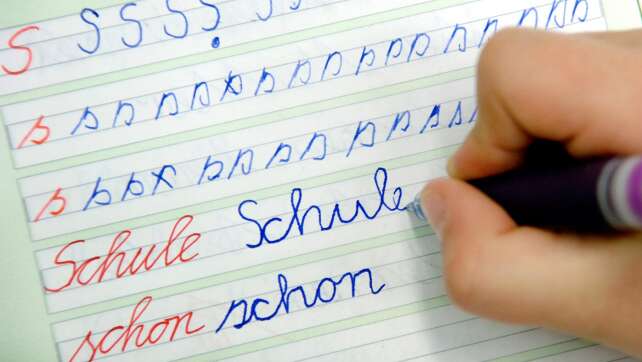 S S S S S S S S S
s s s s s s s s s s s s s s s s s
s s s s s s s s s s s s
Schule Schule
schon schon